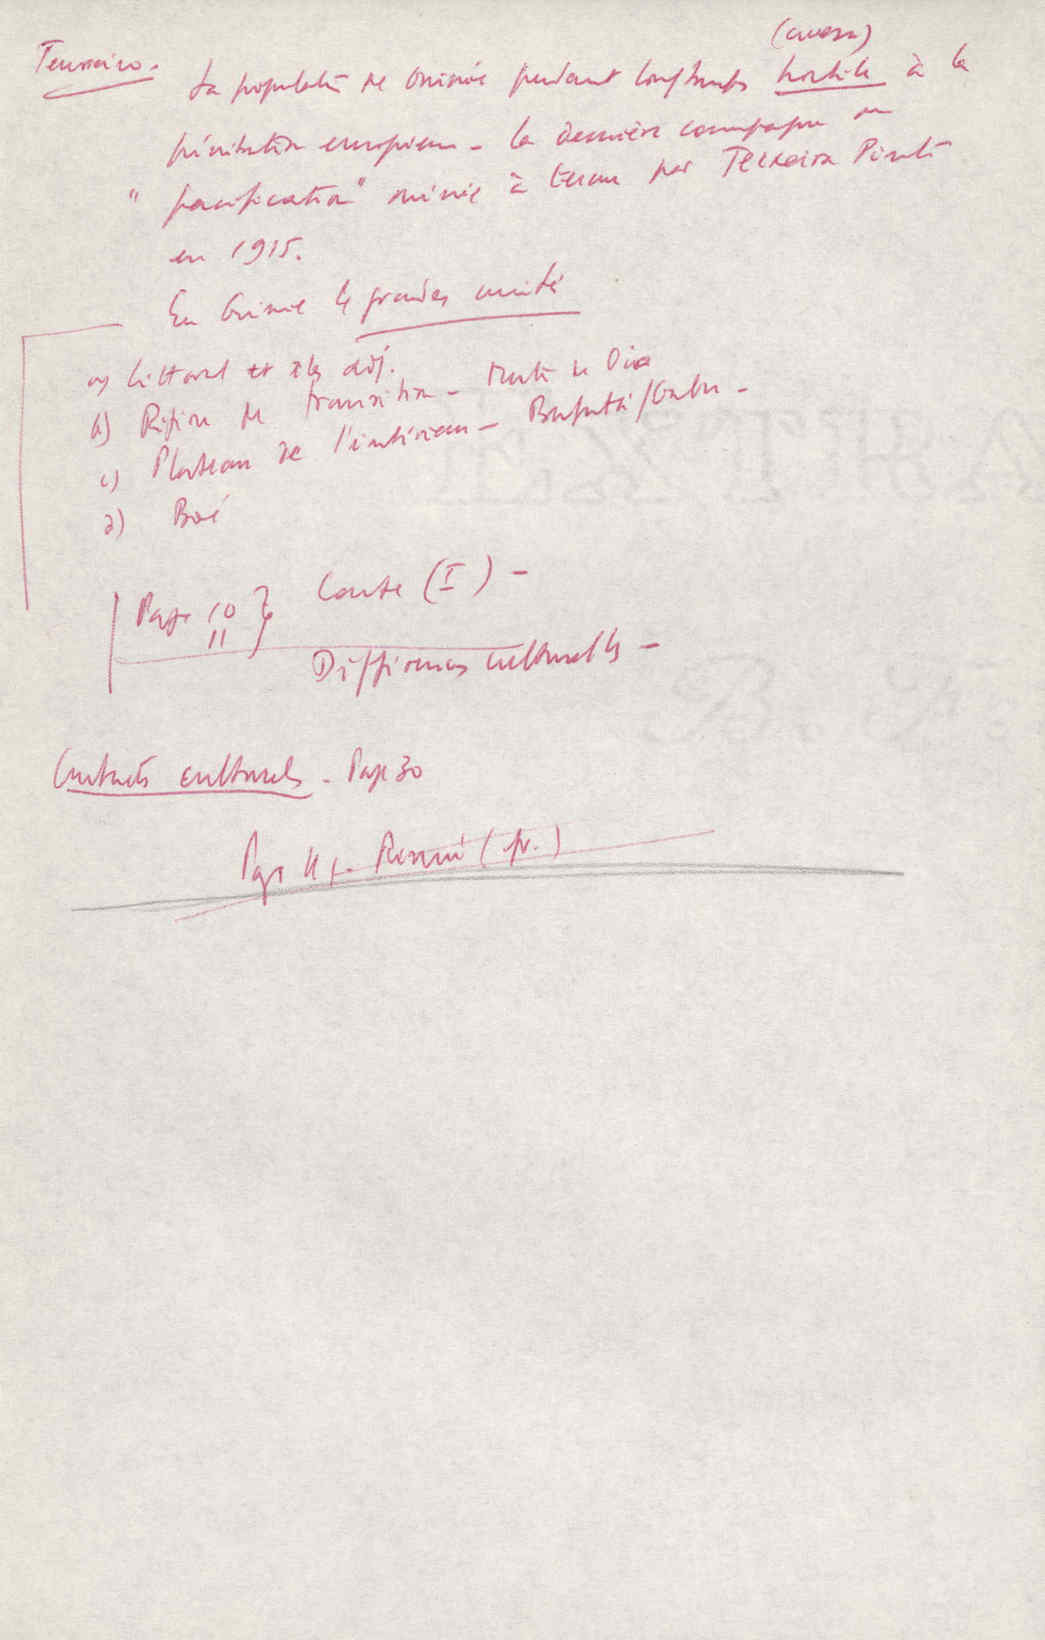 (avessa)
Teixeira. La population de Guinée pendant longtemps hostile à la
pénétration européenne - la dernière campagne de
"pacification" menée à terme par Teixeira Pinto
en 1915.
En Guinée 4 grandes unités
a) Littoral et îles adj.
b) Région de transition - 
c) Plateau de l'intérieur - Bafatá/Gabu -
d) Boé
Page 10
11
Carte (I) -
Différences culturelles -
Contacts culturels - Page 30
Page Résumé (fr.)